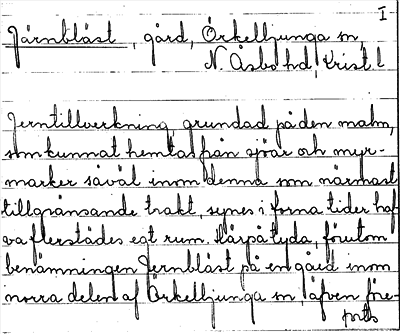 I
Järnbläst, gård, Örkelljunga sn,
N. Åsbo hd, Krist. l
Jerntillverkning, grundad på den malm,
som kunnat hemtas från sjöar och myr-
marker såväl inom denna som närmast
tillgränsande trakt, synes i forna tider haf
va flerstädes egt rum. Härpå tyda, förutom
benämningen Jernbläst på en gård inom
norra delen af Örkelljunga sn, äfven före-